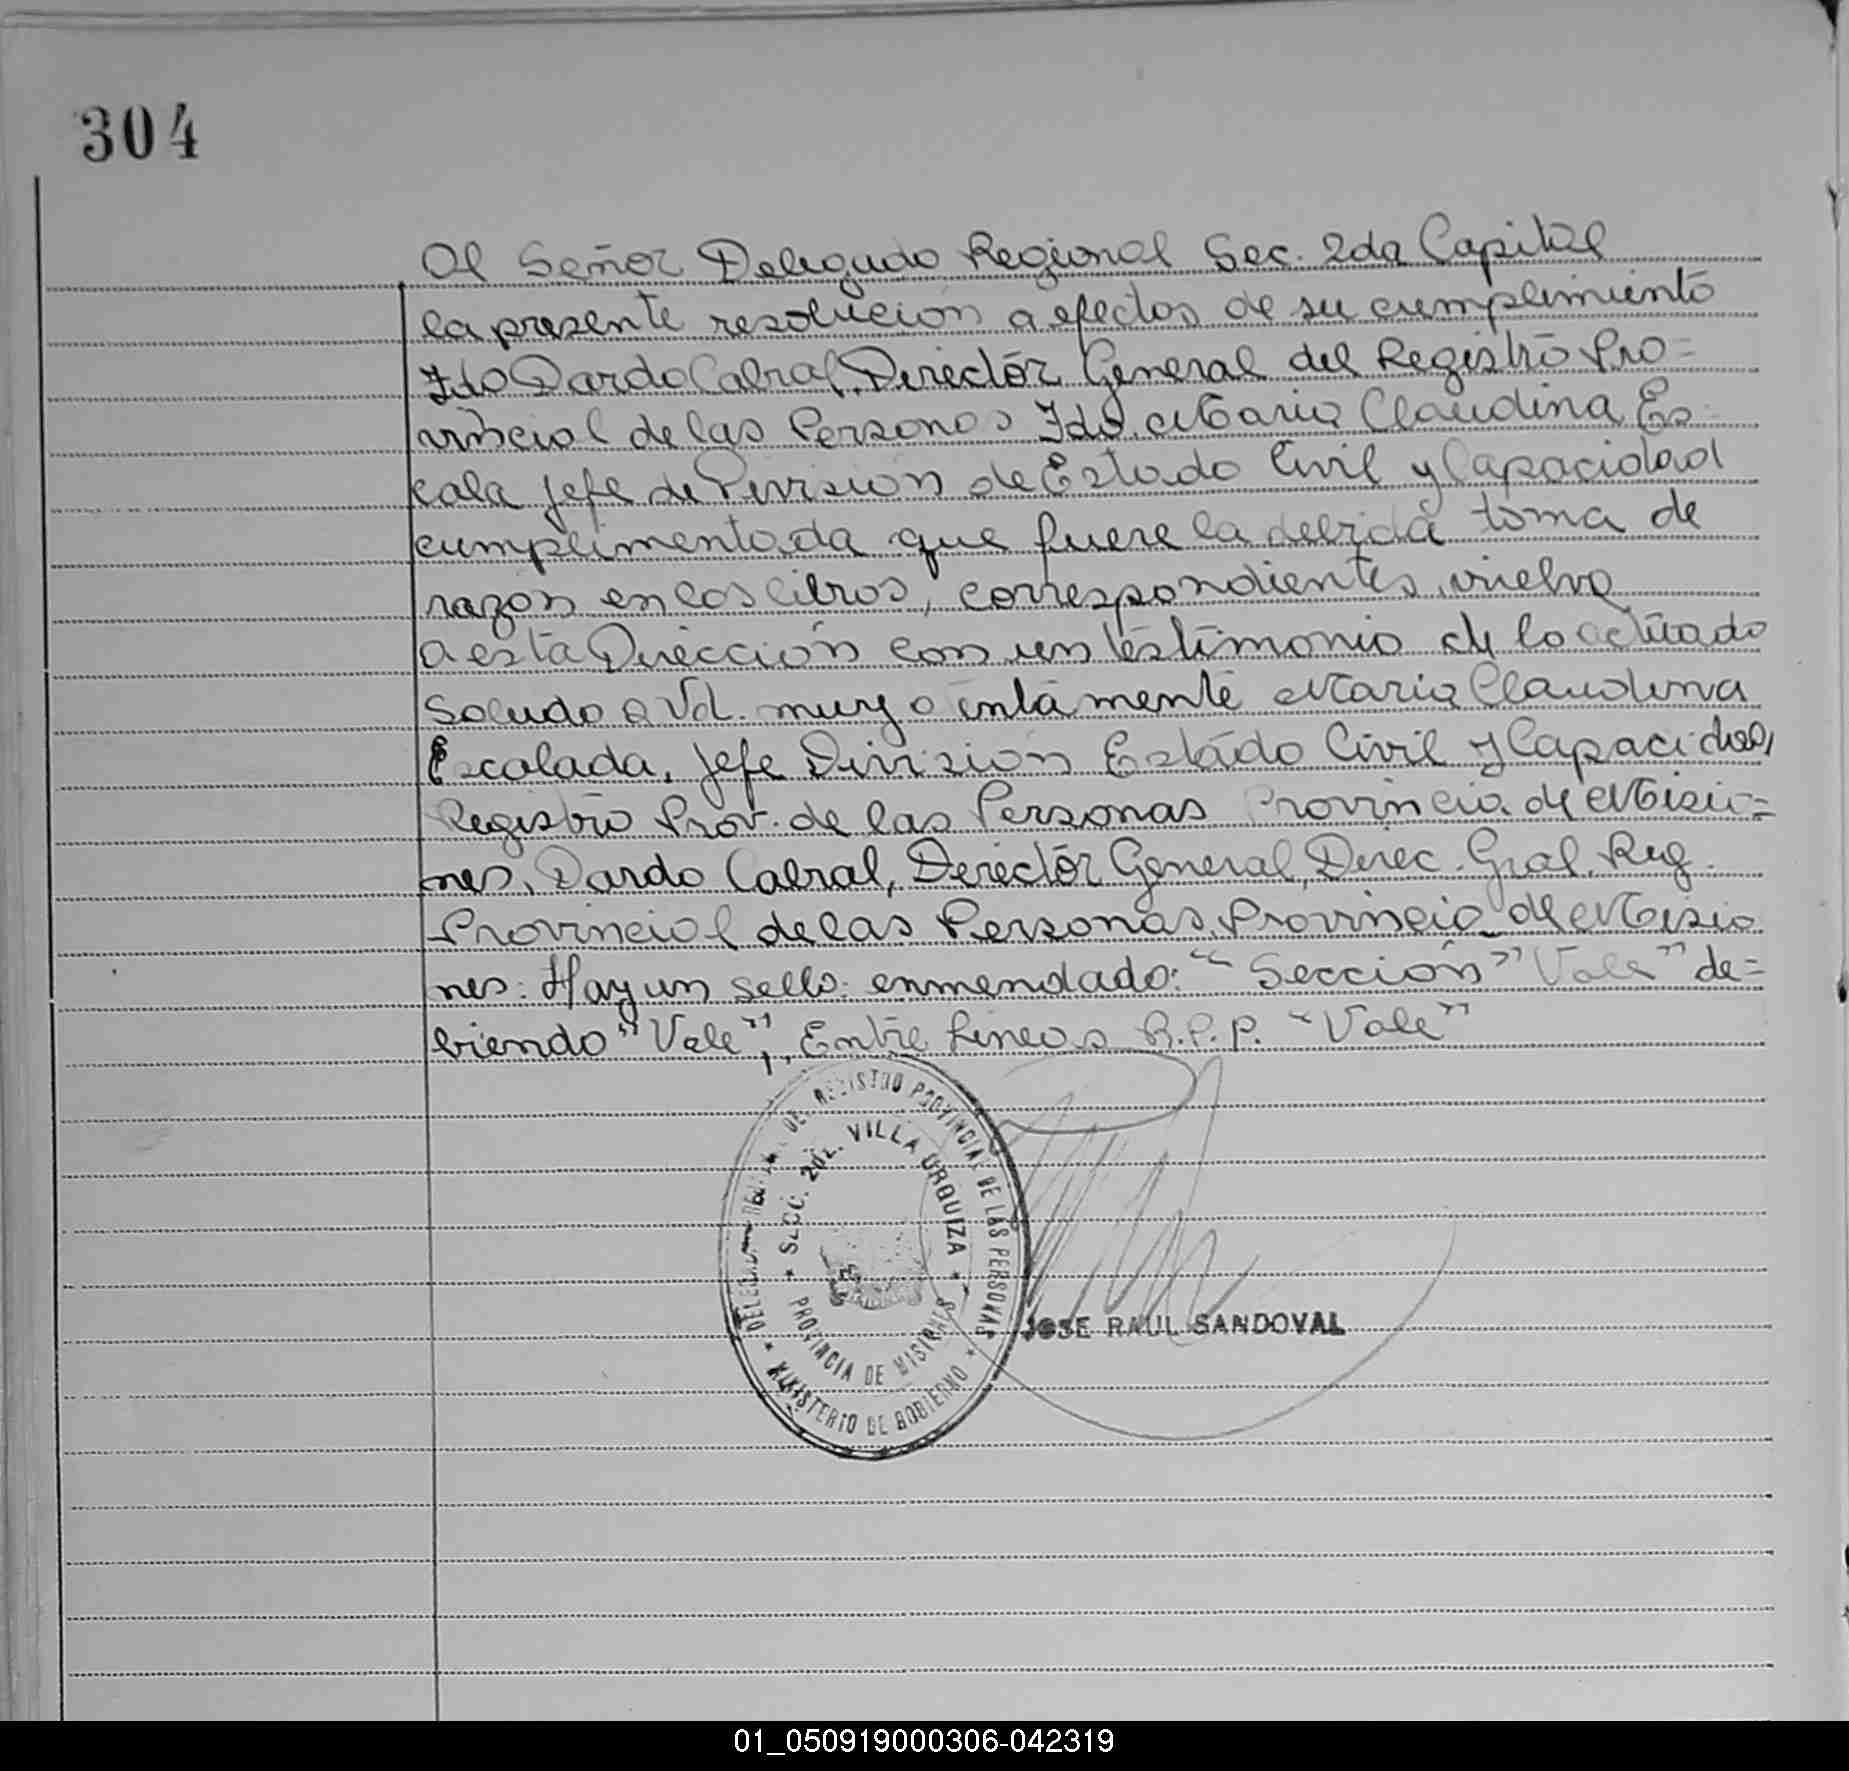 304
Al Señor Delegado Regional Sec. 2da Capital
la presente resolución a efectos de su cumplimiento
Fdo Dardo Cabral, Director General del Registro Pro=
vincial de las Personas Fdo. Maria Claudina Es-
cala jefe de Division de Estado Civil y Capacidad
cumplimentada que fuere la debida toma de
razón en los libros, correspondientes, vuelva
a esta Dirección con un testimonio de lo actuado
Saludo a Vd. muy atentamente Maria Claudina
Escalada, jefe División Estado Civil y Capacidad,
Registro Prov. de las Personas Provincia de Misio=
nes, Dardo Cabral, Director General, Direc. Gral. Reg.
Provincial de las Personas, Provincia de Misio
nes: Hay un sello: enmendado: "Sección" "Vale" de=
biendo "Vale", Entre Lineas R.P.P. "Vale"
DEL REGISTRO PROVINCIAL DE LAS PERSONAS
SECC. 2da. VILLA URQUIZA
PROVINCIA DE MISIONES
MINISTERIO DE GOBIERNO
JOSE RAUL SANDOVAL
01_050919000306-042319